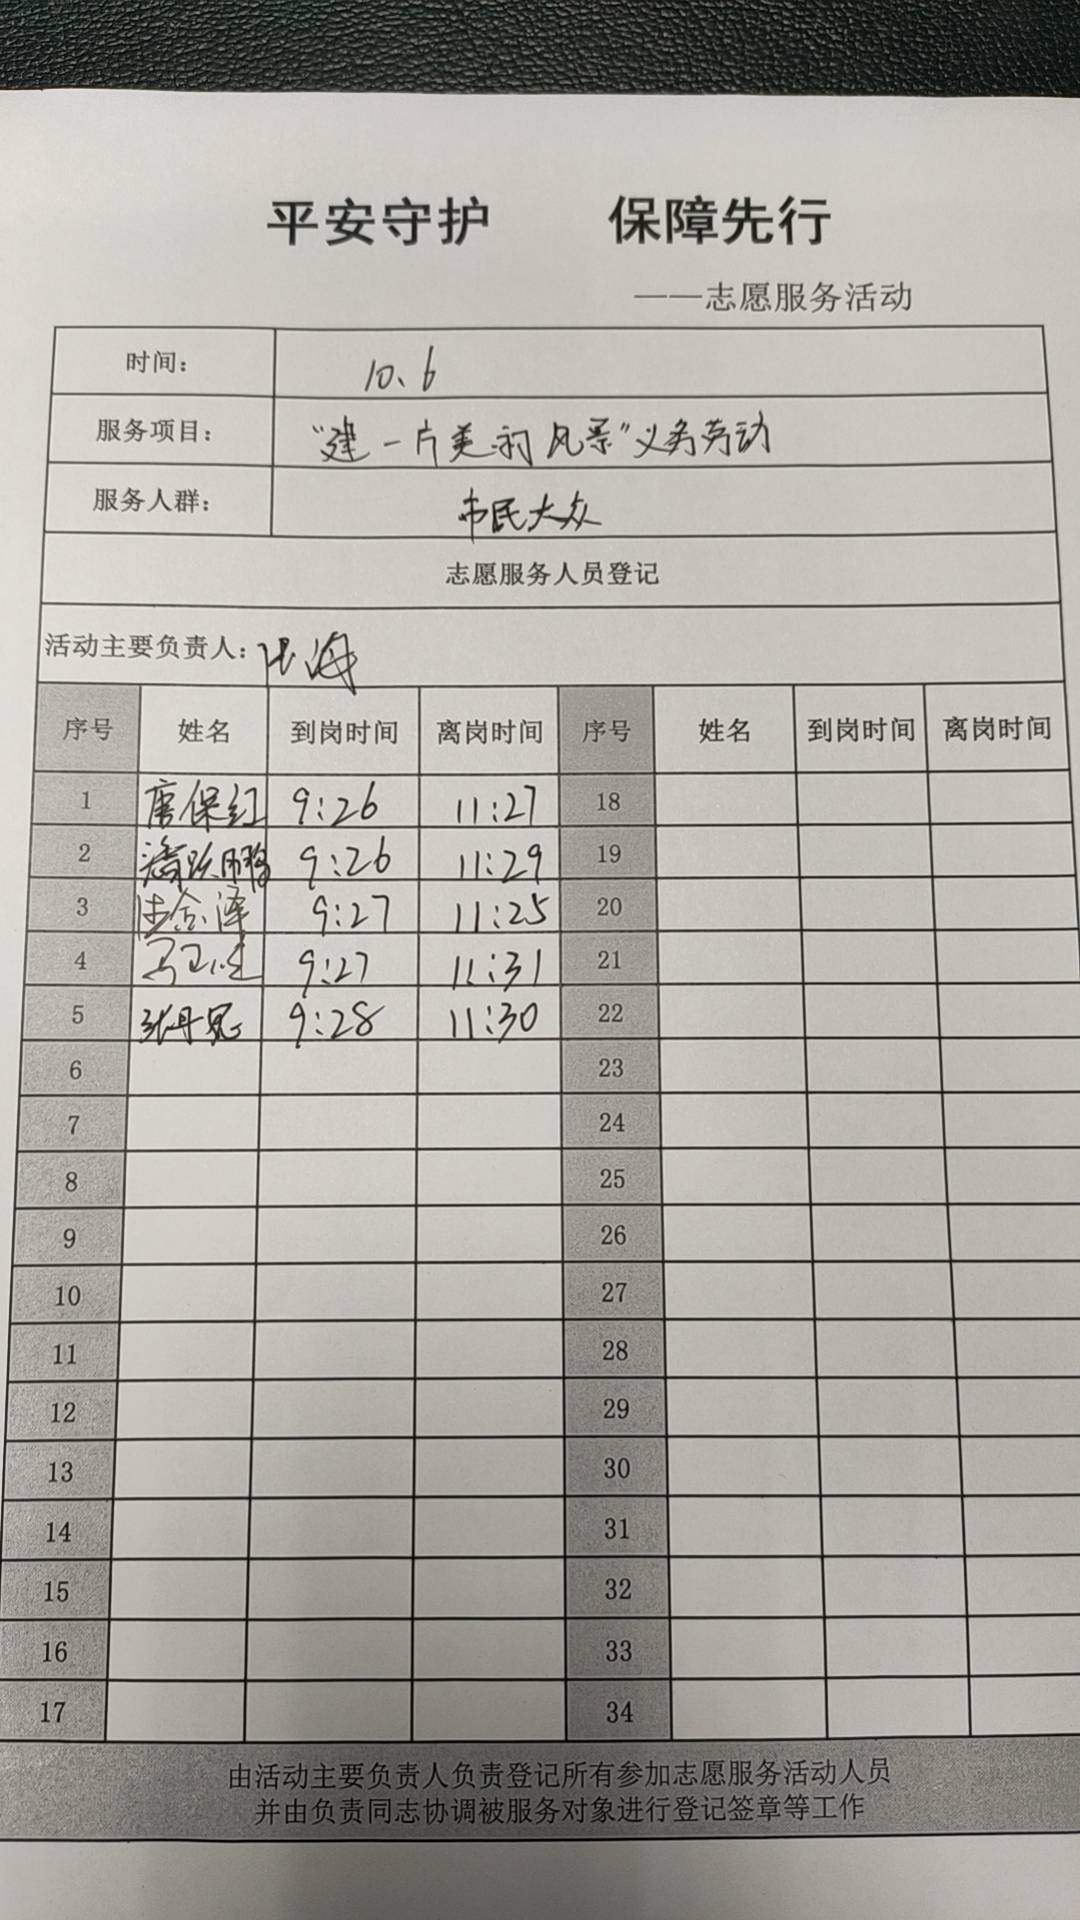 平安守护 保障先行
——志愿服务活动
时间： 10、6
服务项目： “建一片美丽风景”义务劳动
服务人群： 市民大众
志愿服务人员登记
活动主要负责人： 海
序号 姓名 到岗时间 离岗时间 序号 姓名 到岗时间 离岗时间
1 唐保红 9:26 11:27 18
2 潘跃鹏 9:26 11:29 19
3 9:27 11:25 20
4 9:27 11:31 21
5 9:28 11:30 22
6 23
7 24
8 25
9 26
10 27
11 28
12 29
13 30
14 31
15 32
16 33
17 34
由活动主要负责人负责登记所有参加志愿服务活动人员
并由负责同志协调被服务对象进行登记签章等工作